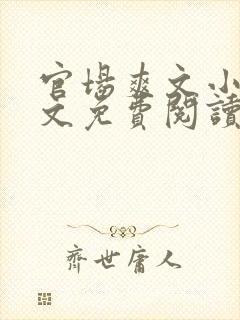 官場爽文小
文免費閱讀
齊世庸人